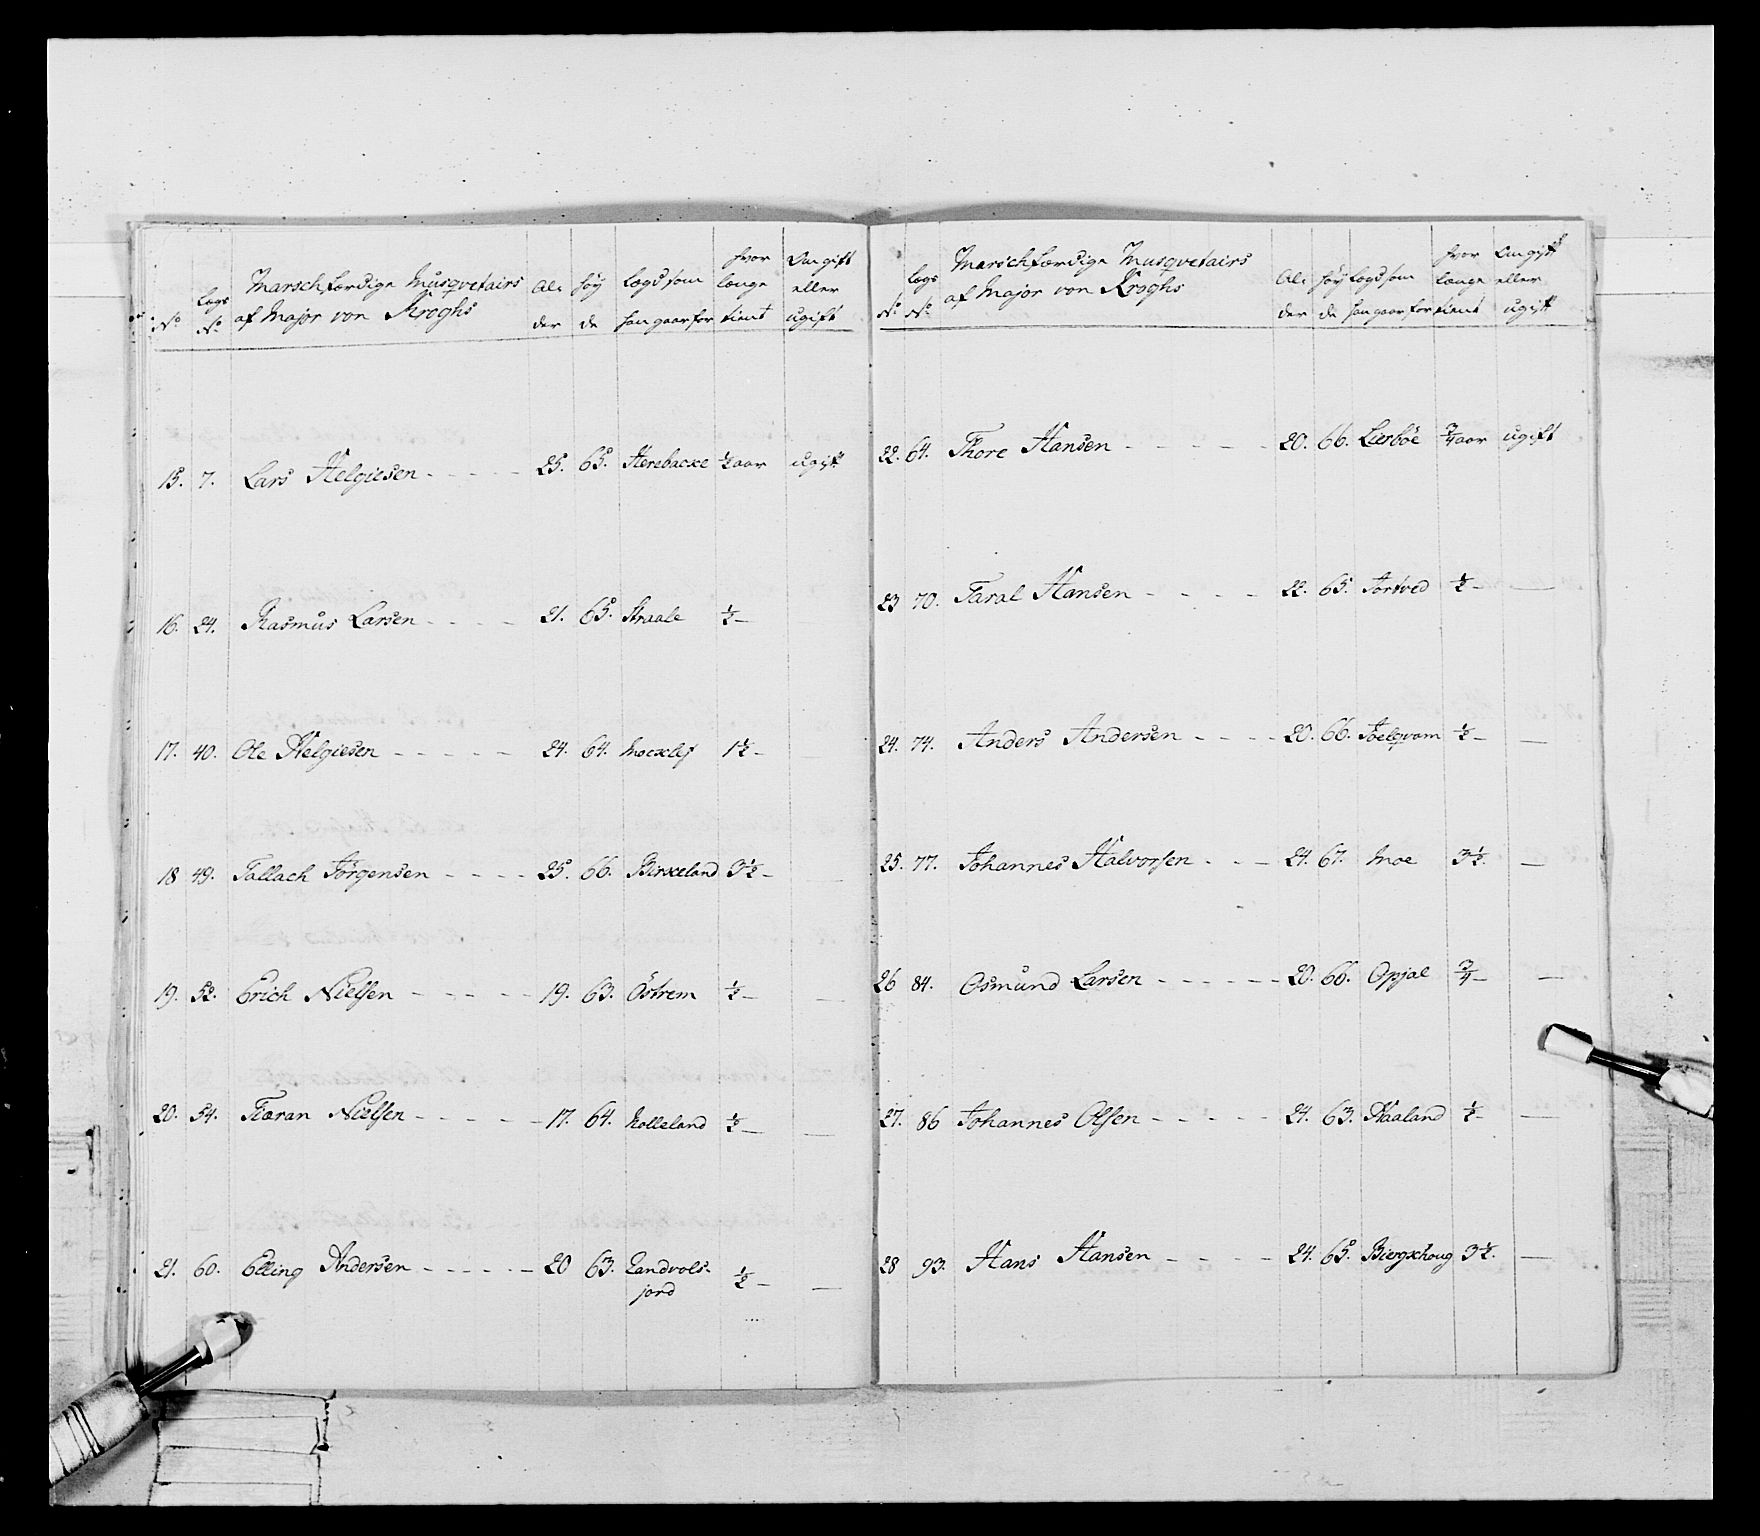 No
Lægs No
Marschfærdige Musqvetairs
af Major von Kroghs
Al-
der
Høy
de
Lægd som
han gaar for
hvor
længe
tient
Om gift
eller
ugift
15. 7. Lars Helgiesen - - - - 25. 65. Herebacke ½ aar ugift
16. 24. Rasmus Larsen - - - - 21. 65. Straale ½ -
17. 40. Ole Helgiesen - - - - - 24. 64. Mocklef 1½ - -
18 49. Tallach Jørgensen - - - - 25. 66. Birkeland 3½ - -
19. 52. Erich Nielsen - - - - - 19. 63. Östrem ½ - -
20. 54. Tiæran Nielsen - - - - - 17. 64. Molleland ½ - -
21. 60. Elling Andersen - - - - - 20 63. Landvols-
jord ½ - -
No
Lægs No
Marschfærdige Musqvetairs
af Major von Kroghs
Al-
der
Høy
de
Lægd som
han gaar for
hvor
længe
tient
Om gift
eller
ugift
22. 64. Thore Hansen - - - - - 20. 66. Lierböe ¾ aar ugift
23 70. Taral Hansen - - - - 22. 65. Tortved ½ - -
24. 74. Anders Andersen - - - - 20. 66. Toelqvam ½ - -
25. 77. Johannes Halvorsen - - - 24. 67. Moe 3½. -
26 84. Osmund Larsen - - - - - - 20. 66. Opjal ¾ - -
27. 86 Johannes Olsen - - - - - 24. 63. Haaland ½ - -
28 93. Hans Hansen - - - - 24. 65. Biergkhoug 3½. -